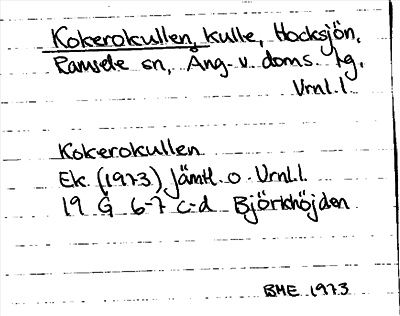 Kokerokullen, kulle, Hocksjön,
Ramsele sn, Ång- v doms. lg.
Vrnl. l.
Kokerokullen
Ek. (1973) Jämtl. o. Vrnl. l.
19 G 6-7 c-d Björkhöjden
BME 1973